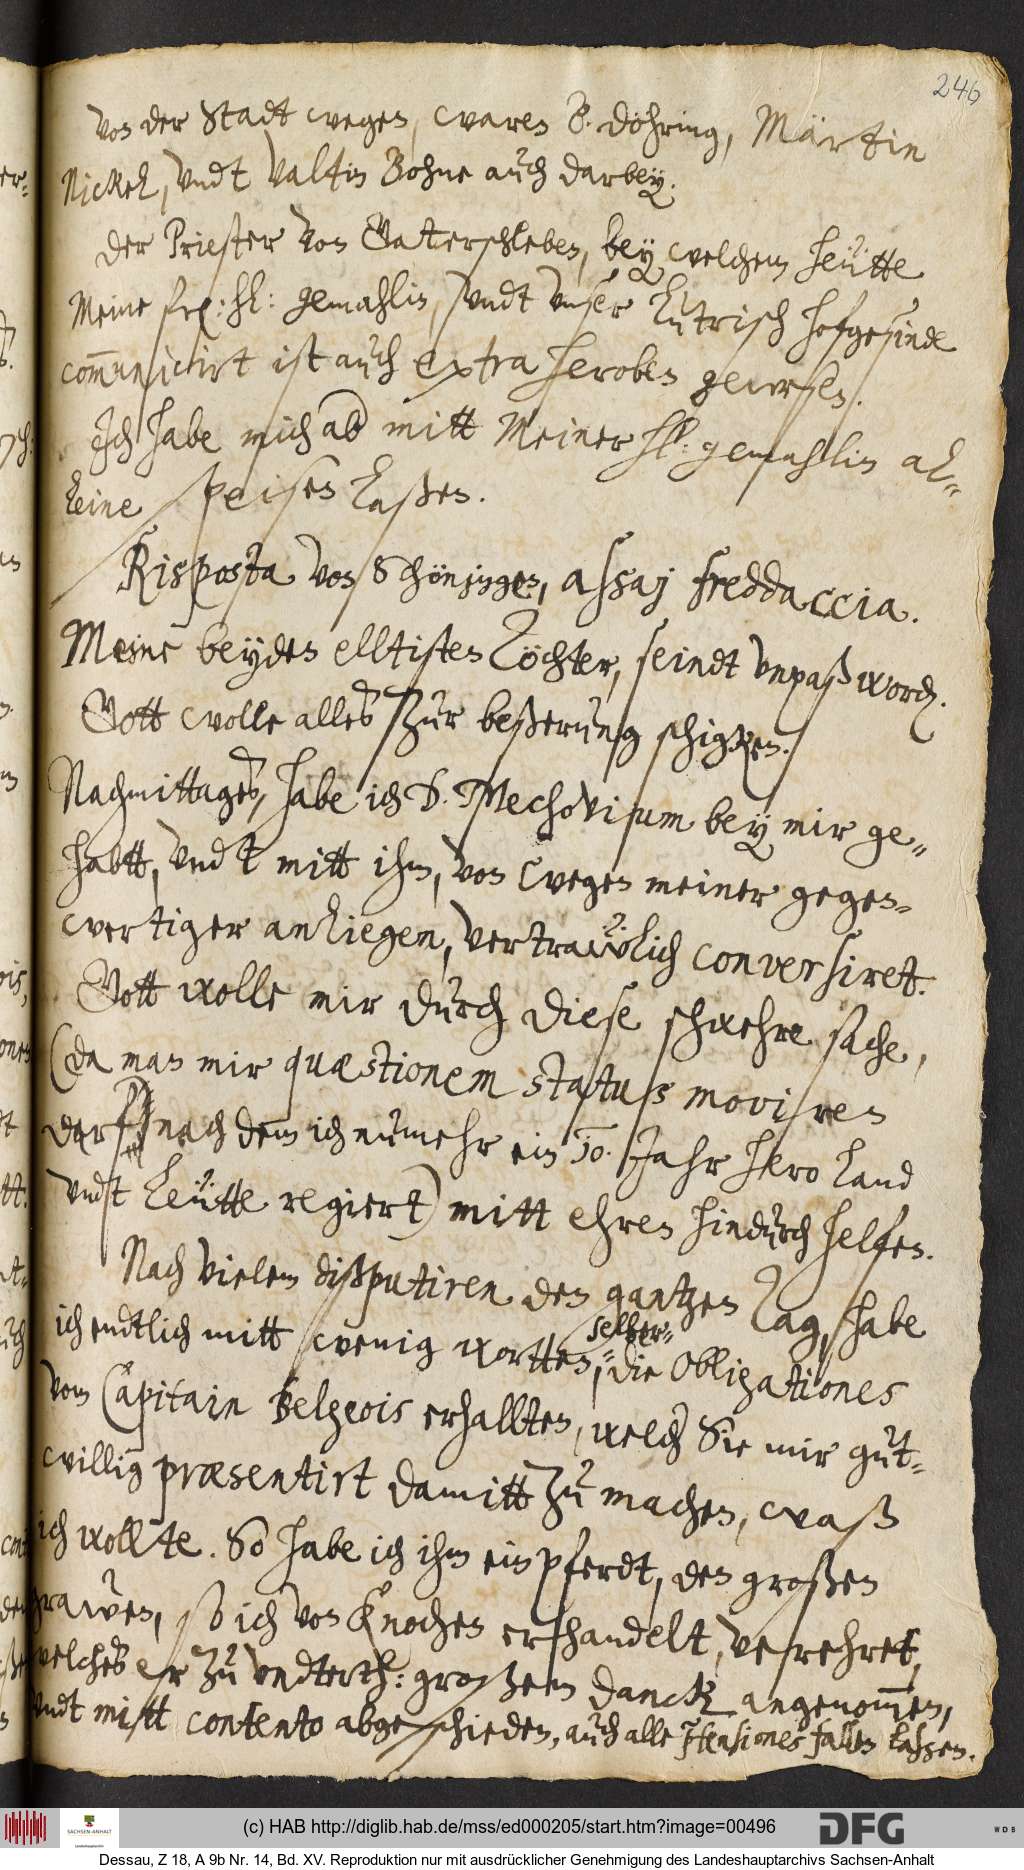 246
Von der Stadt wegen, waren B. Döhring, Märtin
Nickel, vndt Valtin Bohne auch darbey.
Der Priester von Gaterschleben, bey welchem heütte
Meine fre: hl: gemahlin, vndt vnser Lutrisch hofgesinde
communicirt ist auch extra heroben gewesen.
Ich habe mich ab mitt Meiner hl: gemahlin al-
leine speisen laßen.
Risposta von Schöningen, assaj freddaccia.
Meine beyden elltisten Töchter, seindt vnpaß word.
Gott wolle alles zur beßerung schigken.
Nachmittages, habe ich D. Mechovium bey mir ge-
habtt, vndt mitt ihm, von wegen meiner gegen-
wertiger anliegen, vertrawlich conversiret.
Gott wolle mir durch diese schwehre sache,
(da man mir quæstionem status moviren
darf nach dem ich numehr ein 10. Jahr hero land
vndt leütte regiert) mitt ehren hindurch helfen.
Nach vielem dißputiren den gantzen Tag, habe
ich endtlich mitt wenig wortten, selber- die Obligationes
vom Capitain Belgeois erhallten, welche Sie mir gut-
willig præsentirt damitt zu machen, waß
ich wollte. So habe ich ihm ein pferdt, den großen
grawen, so ich von Knochen erhandelt, verehret,
welches er zu vndterth: großem danck angenommen,
vndt mitt contento abgeschieden, auch alle prætensiones fallen laßen.
(c) HAB http://diglib.hab.de/mss/ed000205/start.htm?image=00496
SACHSEN-ANHALT
DFG
WDB
Dessau, Z 18, A 9b Nr. 14, Bd. XV. Reproduktion nur mit ausdrücklicher Genehmigung des Landeshauptarchivs Sachsen-Anhalt